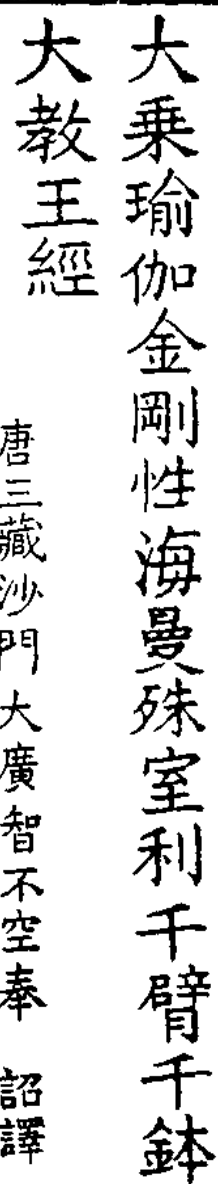 大乗瑜伽金剛性海曼殊室利千臂千鉢
大教王經
唐三藏沙門大廣智不空奉　詔譯